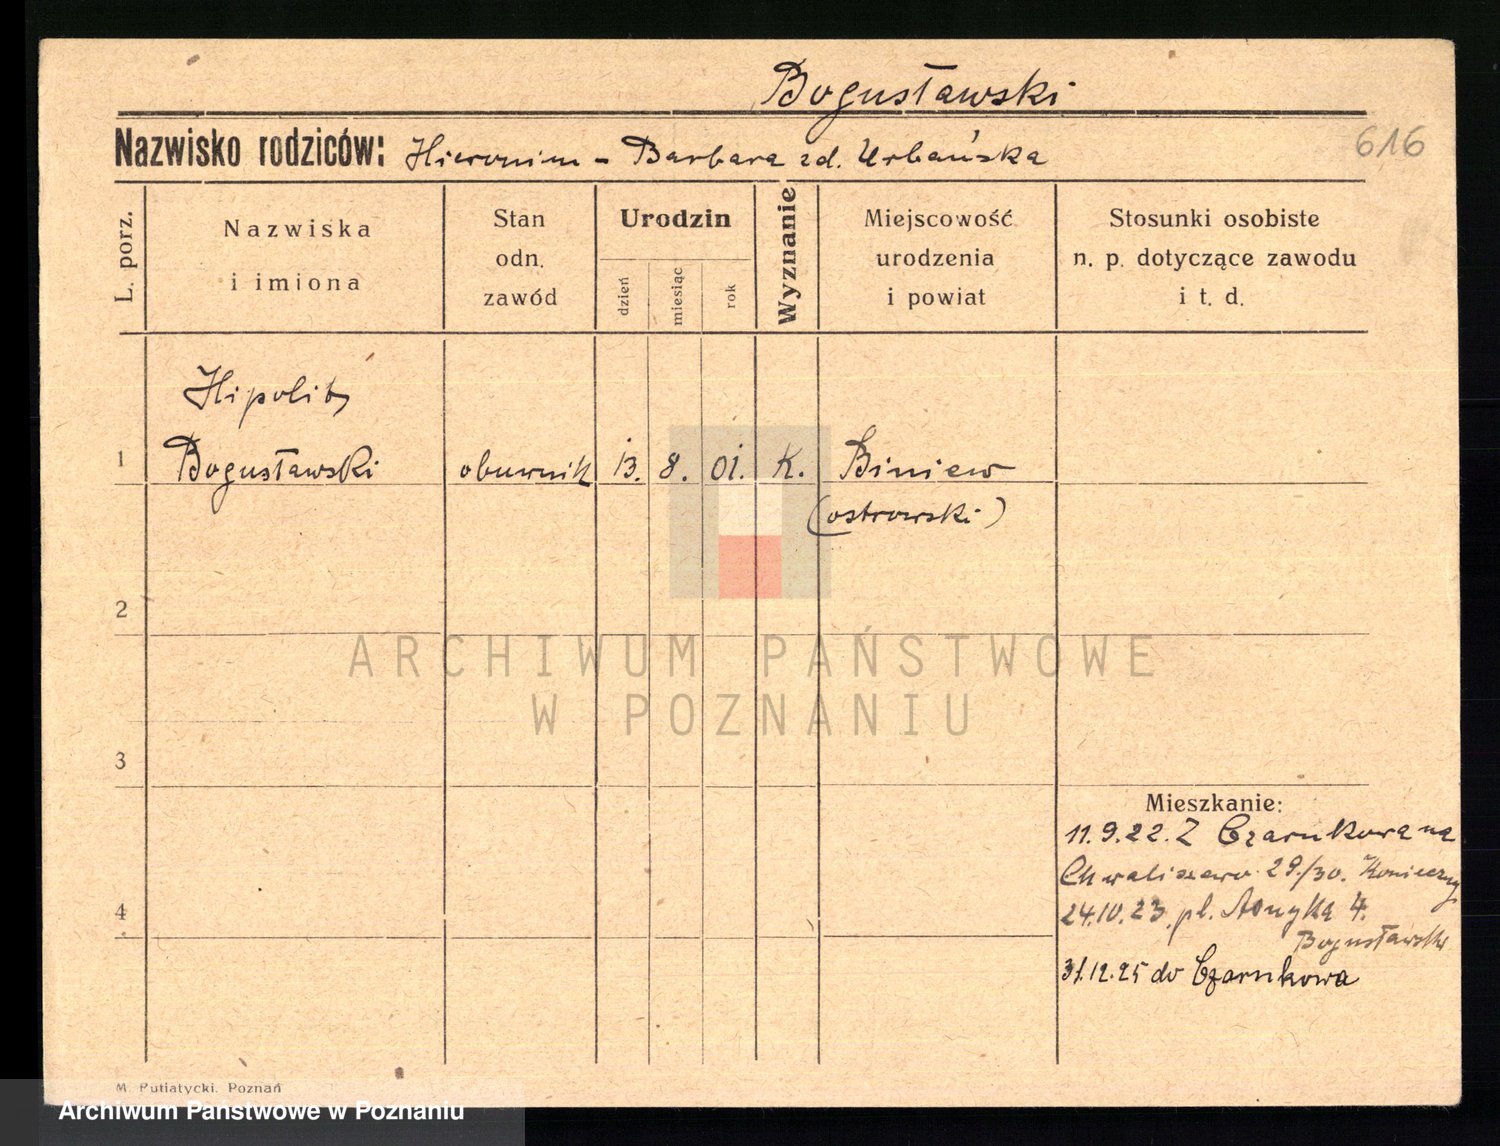 Bogusławski
Nazwisko rodziców: Hieronim - Barbara zd. Urbańska
616
L. porz.
Nazwiska
i imiona
Stan
odn.
zawód
Urodzin
dzień
miesiąc
rok
Wyznanie
Miejscowość
urodzenia
i powiat
Stosunki osobiste
n. p. dotyczące zawodu
i t. d.
Hipolit
1 Bogusławski obuwnik 13. 8. 01. K. Biniew
(ostrowski)
2
ARCHIWUM PAŃSTWOWE
W POZNANIU
3
Mieszkanie:
11.9.22. Z Czarnkowa na
Chwaliszewo 29/30. Konieczny
4
24.10.23. pl. Asnyka 4.
Bogusławski
31.12.25 do Czarnkowa
M. Putiatycki, Poznań
Archiwum Państwowe w Poznaniu